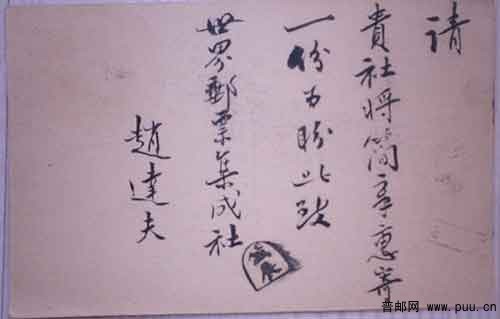 请
貴社将简章惠寄
一份为盼此致
世界郵票集成社
趙達夫
普邮网 www.puu.cn